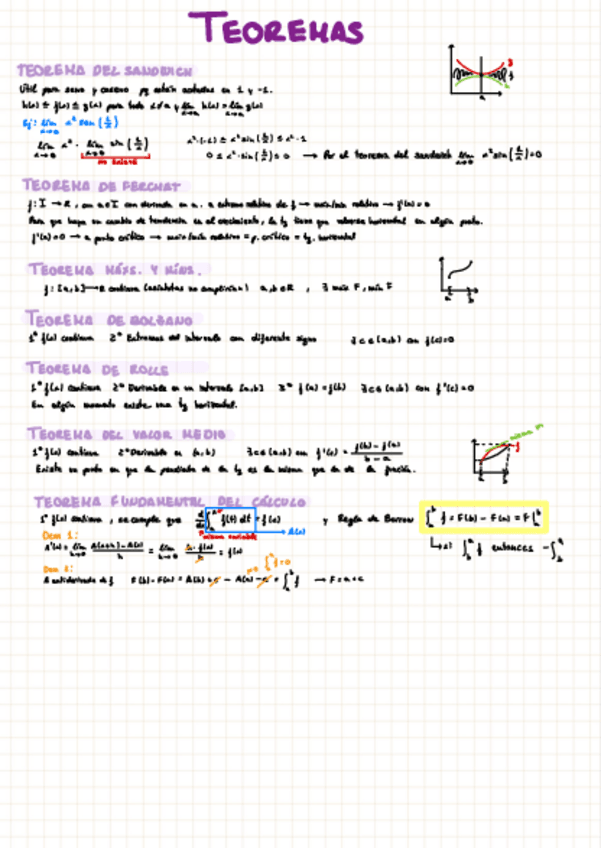 TEOREMAS
TEOREMA DEL SANDWICH
Útil para seno y coseno pq están acotadas en 1 y -1.
h(x) ≤ f(x) ≤ g(x) para todo x≠a y lim x→a h(x) = lim x→a g(x)
Ej: lim x→0 x² sen (1/x)
lim x→0 x² · lim x→0 sin (1/x) x²·(-1) ≤ x² sin (1/x) ≤ x²·1
no existe 0 ≤ x²·sin (1/x) ≤ 0 → Por el teorema del sandwich lim x→0 x² sin (1/x) = 0
TEOREMA DE FERMAT
f: I → R, con a∈I con derivada en a. a extremo relativo de f → máx/mín relativo → f'(a) = 0
Para que haya un cambio de tendencia en el crecimiento, la tg tiene que volverse horizontal en algún punto.
f'(a) = 0 → a punto crítico → máx/mín relativo = p. crítico = tg. horizontal
TEOREMA MÁXS. Y MÍNS.
f: [a,b] → R continua a,b ∈ R, ∃ máx F, mín F
TEOREMA DE BOLZANO
1º f(x) continua 2º Extremos del intervalo con diferente signo ∃ c ∈ (a,b) con f(c)=0
TEOREMA DE ROLLE
1º f(x) continua 2º Derivable en un intervalo [a,b] 3º f(a) = f(b) ∃ c ∈ (a,b) con f'(c) = 0
En algún momento existe una tg horizontal.
TEOREMA DEL VALOR MEDIO
1º f(x) continua 2º Derivable en (a,b) ∃ c ∈ (a,b) con f'(c) = f(b) - f(a) / b - a
Existe un punto en que la pendiente de la tg es la misma que la de la función.
misma m
TEOREMA FUNDAMENTAL DEL CÁLCULO
1º f(x) continua, se cumple que d/dx ∫ f(t) dt = f(x) y Regla de Barrow ∫ f = F(b) - F(a) = F
misma variable → A(x)
Dem 1:
A'(x) = lim h→0 A(x+h) - A(x) / h = lim h→0 h · f(x) / h = f(x)
↳ si ∫ f entonces -∫
Dem 2:
A antiderivada de f F(b) - F(a) = A(b) + c - A(a) - c = ∫ f → F = A + c